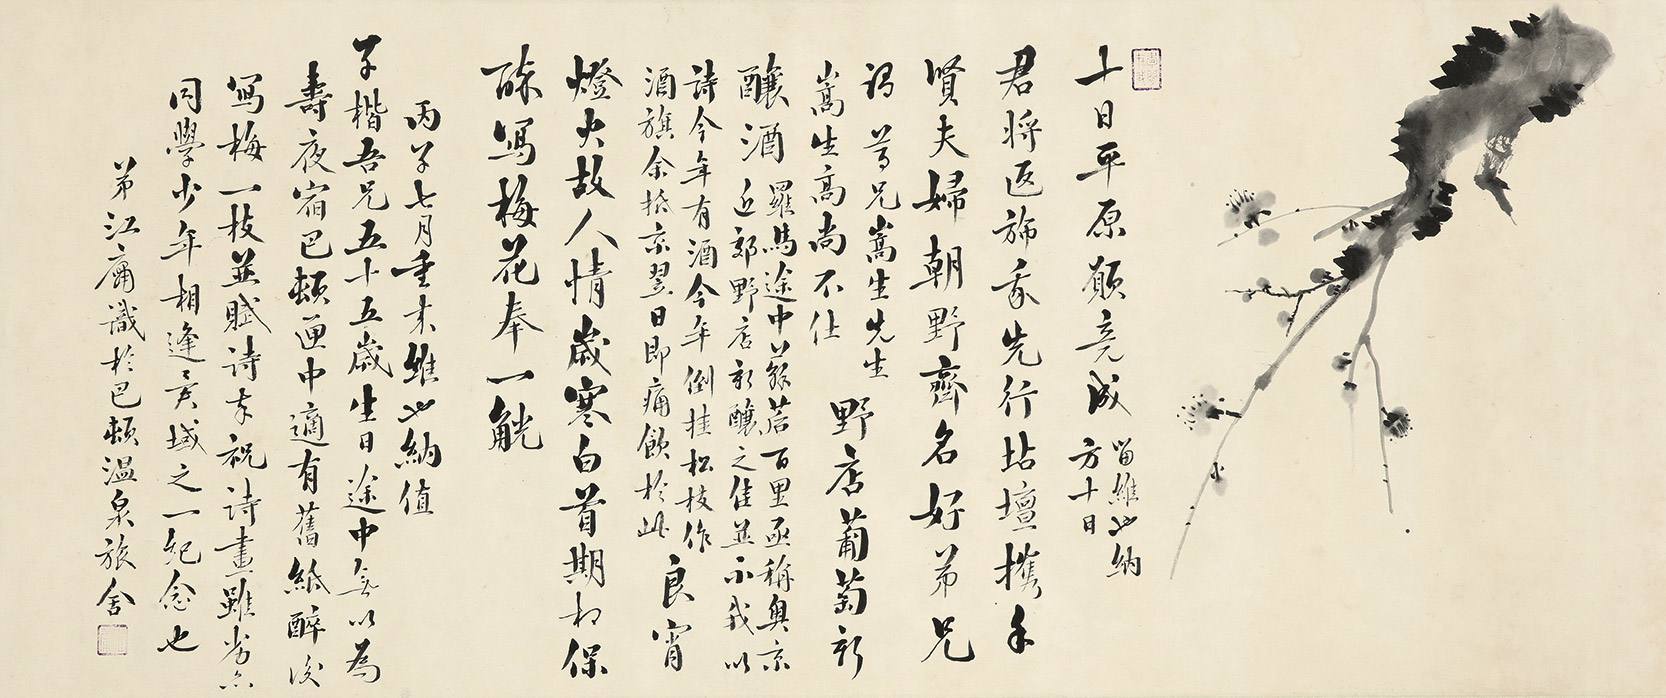 十日平原願竟成
留維也納
方十日
君將返旆我先行坫壇攜手
賢夫婦朝野齊名好弟兄
謂尊兄嵩生先生
嵩生高尚不仕
野店葡萄新
釀酒
羅馬途中蘇君百里亟稱奧京
近郊野店新釀之佳並示我以
詩今年有酒今年倒挂松枝作
酒旗余抵京翌日即痛飲於此
良宵
燈火故人情歲寒白首期相保
醉寫梅花奉一觥
丙子七月重來維也納值
子楷吾兄五十五歲生日途中無以為
壽夜宿巴頓匣中適有舊紙醉後
寫梅一枝並賦詩奉祝詩畫雖劣亦
同學少年相逢異域之一紀念也
弟江庸識於巴頓溫泉旅舍